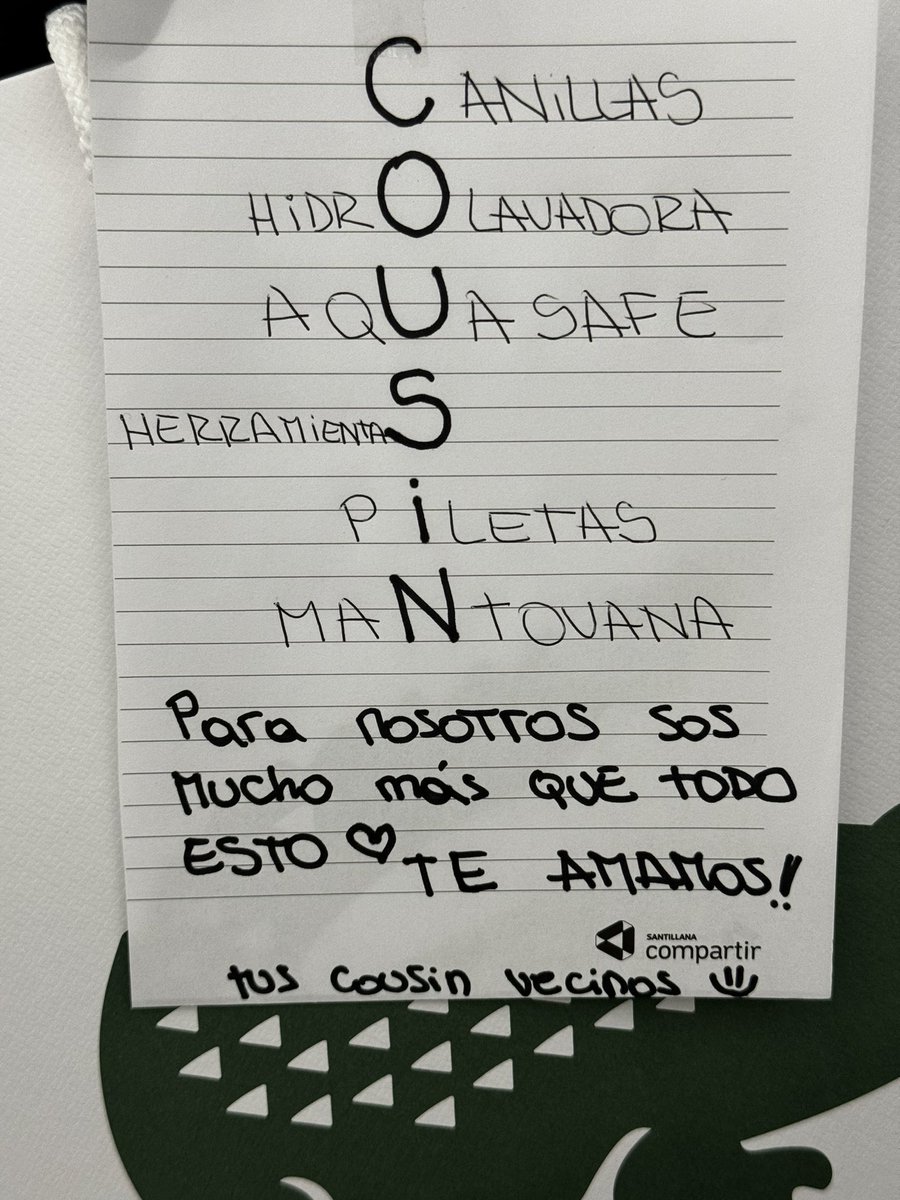 CANiLLAS
HiDROLAVADORA
AQUASAFE
HERRAMiENTAS
PiLETAS
MANTOVANA
Para nosotros sos
mucho más QUE TODO
ESTO ♡ TE AMAMOS!!
SANTILLANA
compartir
tus cousin vecinos